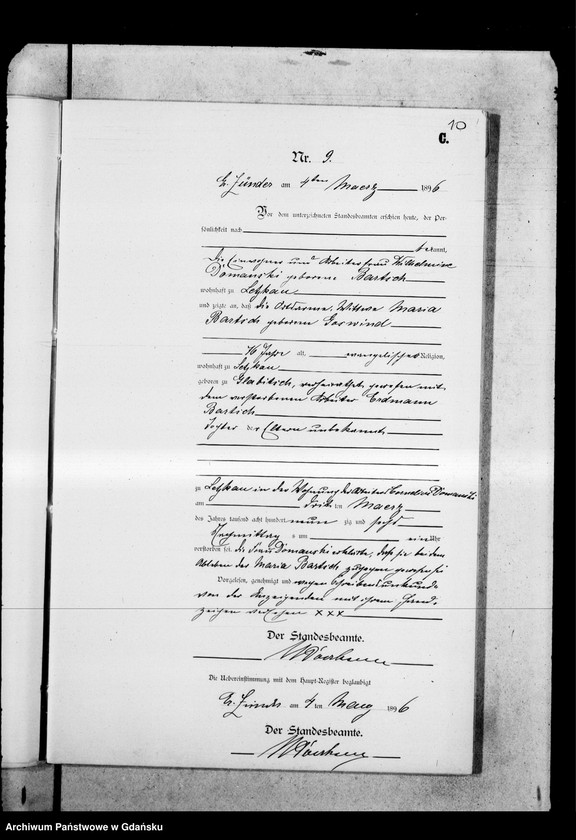 10
C.
Nr. 9.
Gr. Zünder am 4ten Maerz 1896
Vor dem unterzeichneten Standesbeamten erschien heute, der Per-
sönlichkeit nach
bekannt,
die Einwohner und Arbeiterfrau Wilhelmine
Domanski geborene Bartsch
wohnhaft zu Letzkau
und zeigte an, daß die Ortsarme, Wittwe Maria
Bartsch geborene
76 Jahr alt, evangelischer Religion,
wohnhaft zu Letzkau
geboren zu Glabitsch, verheirathet gewesen mit
dem verstorbenen Arbeiter Erdmann
Bartsch
Tochter der Eltern unbekannt
zu Letzkau in der Wohnung des Arbeiters Cornelius Domanski
am dritten Maerz
des Jahres tausend acht hundert neun zig und sechs
Nachmittag s um ein Uhr
verstorben sei. die Frau Domanski erklärte, daß sie bei dem
Ableben der Maria Bartsch zugegen gewesen sei
Vorgelesen, genehmigt und wegen Schreibensunkunde
von der Anzeigenden mit ihrem Hand-
zeichen versehen xxx
Der Standesbeamte.
Die Uebereinstimmung mit dem Haupt-Register beglaubigt
Gr. Zünder am 4 ten Maerz 1896
Der Standesbeamte.
Archiwum Państwowe w Gdańsku